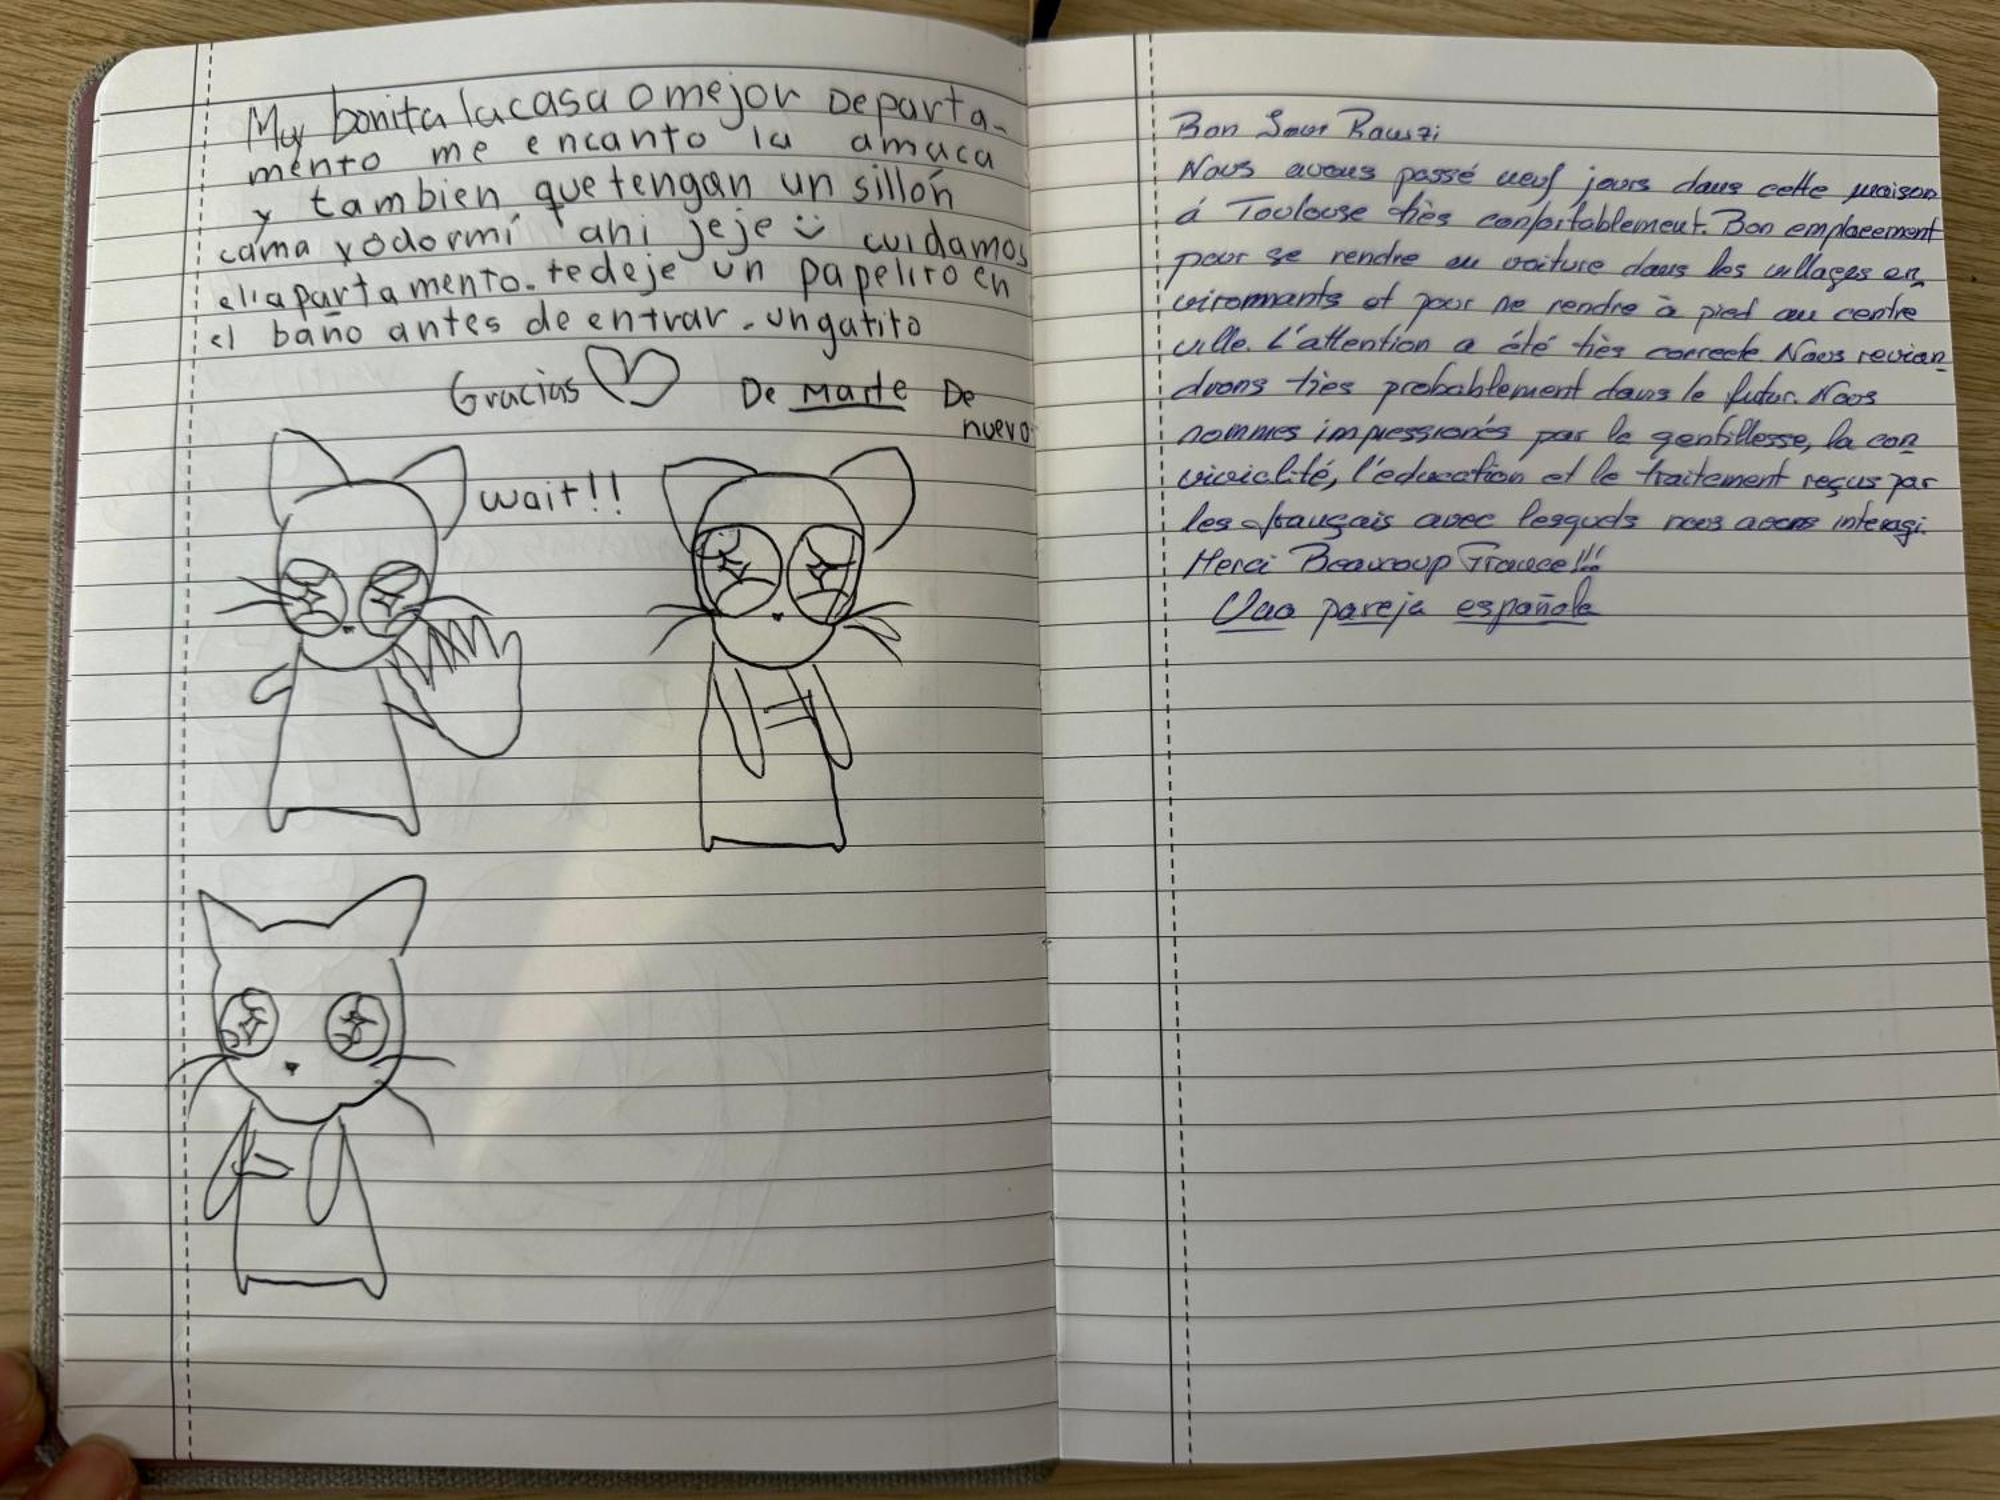 Muy bonita la casa o mejor Departa-
mento me encanto la amaca
y tambien que tengan un sillón
cama yo dormí ahi jeje
cuidamos
el apartamento. te deje un papelito en
el baño antes de entrar. un gatito
Gracias
De Marte De
nuevo
wait!!
Bon Sour
Nous avons passé neuf jours dans cette maison
á Toulouse très confortablement. Bon emplacement
pour se rendre en voiture dans les villages en
vironnants et pour ne rendre à pied au centre
ville. L'attention a été très correcte. Nous revien
drons très probablement dans le futur. Nous
sommes impressionés par la gentillesse, la con
vivialité, l'education et le traitement reçus par
les français avec lesquels nous avons interagi.
Merci Beaucoup France!!!
Una pareja española